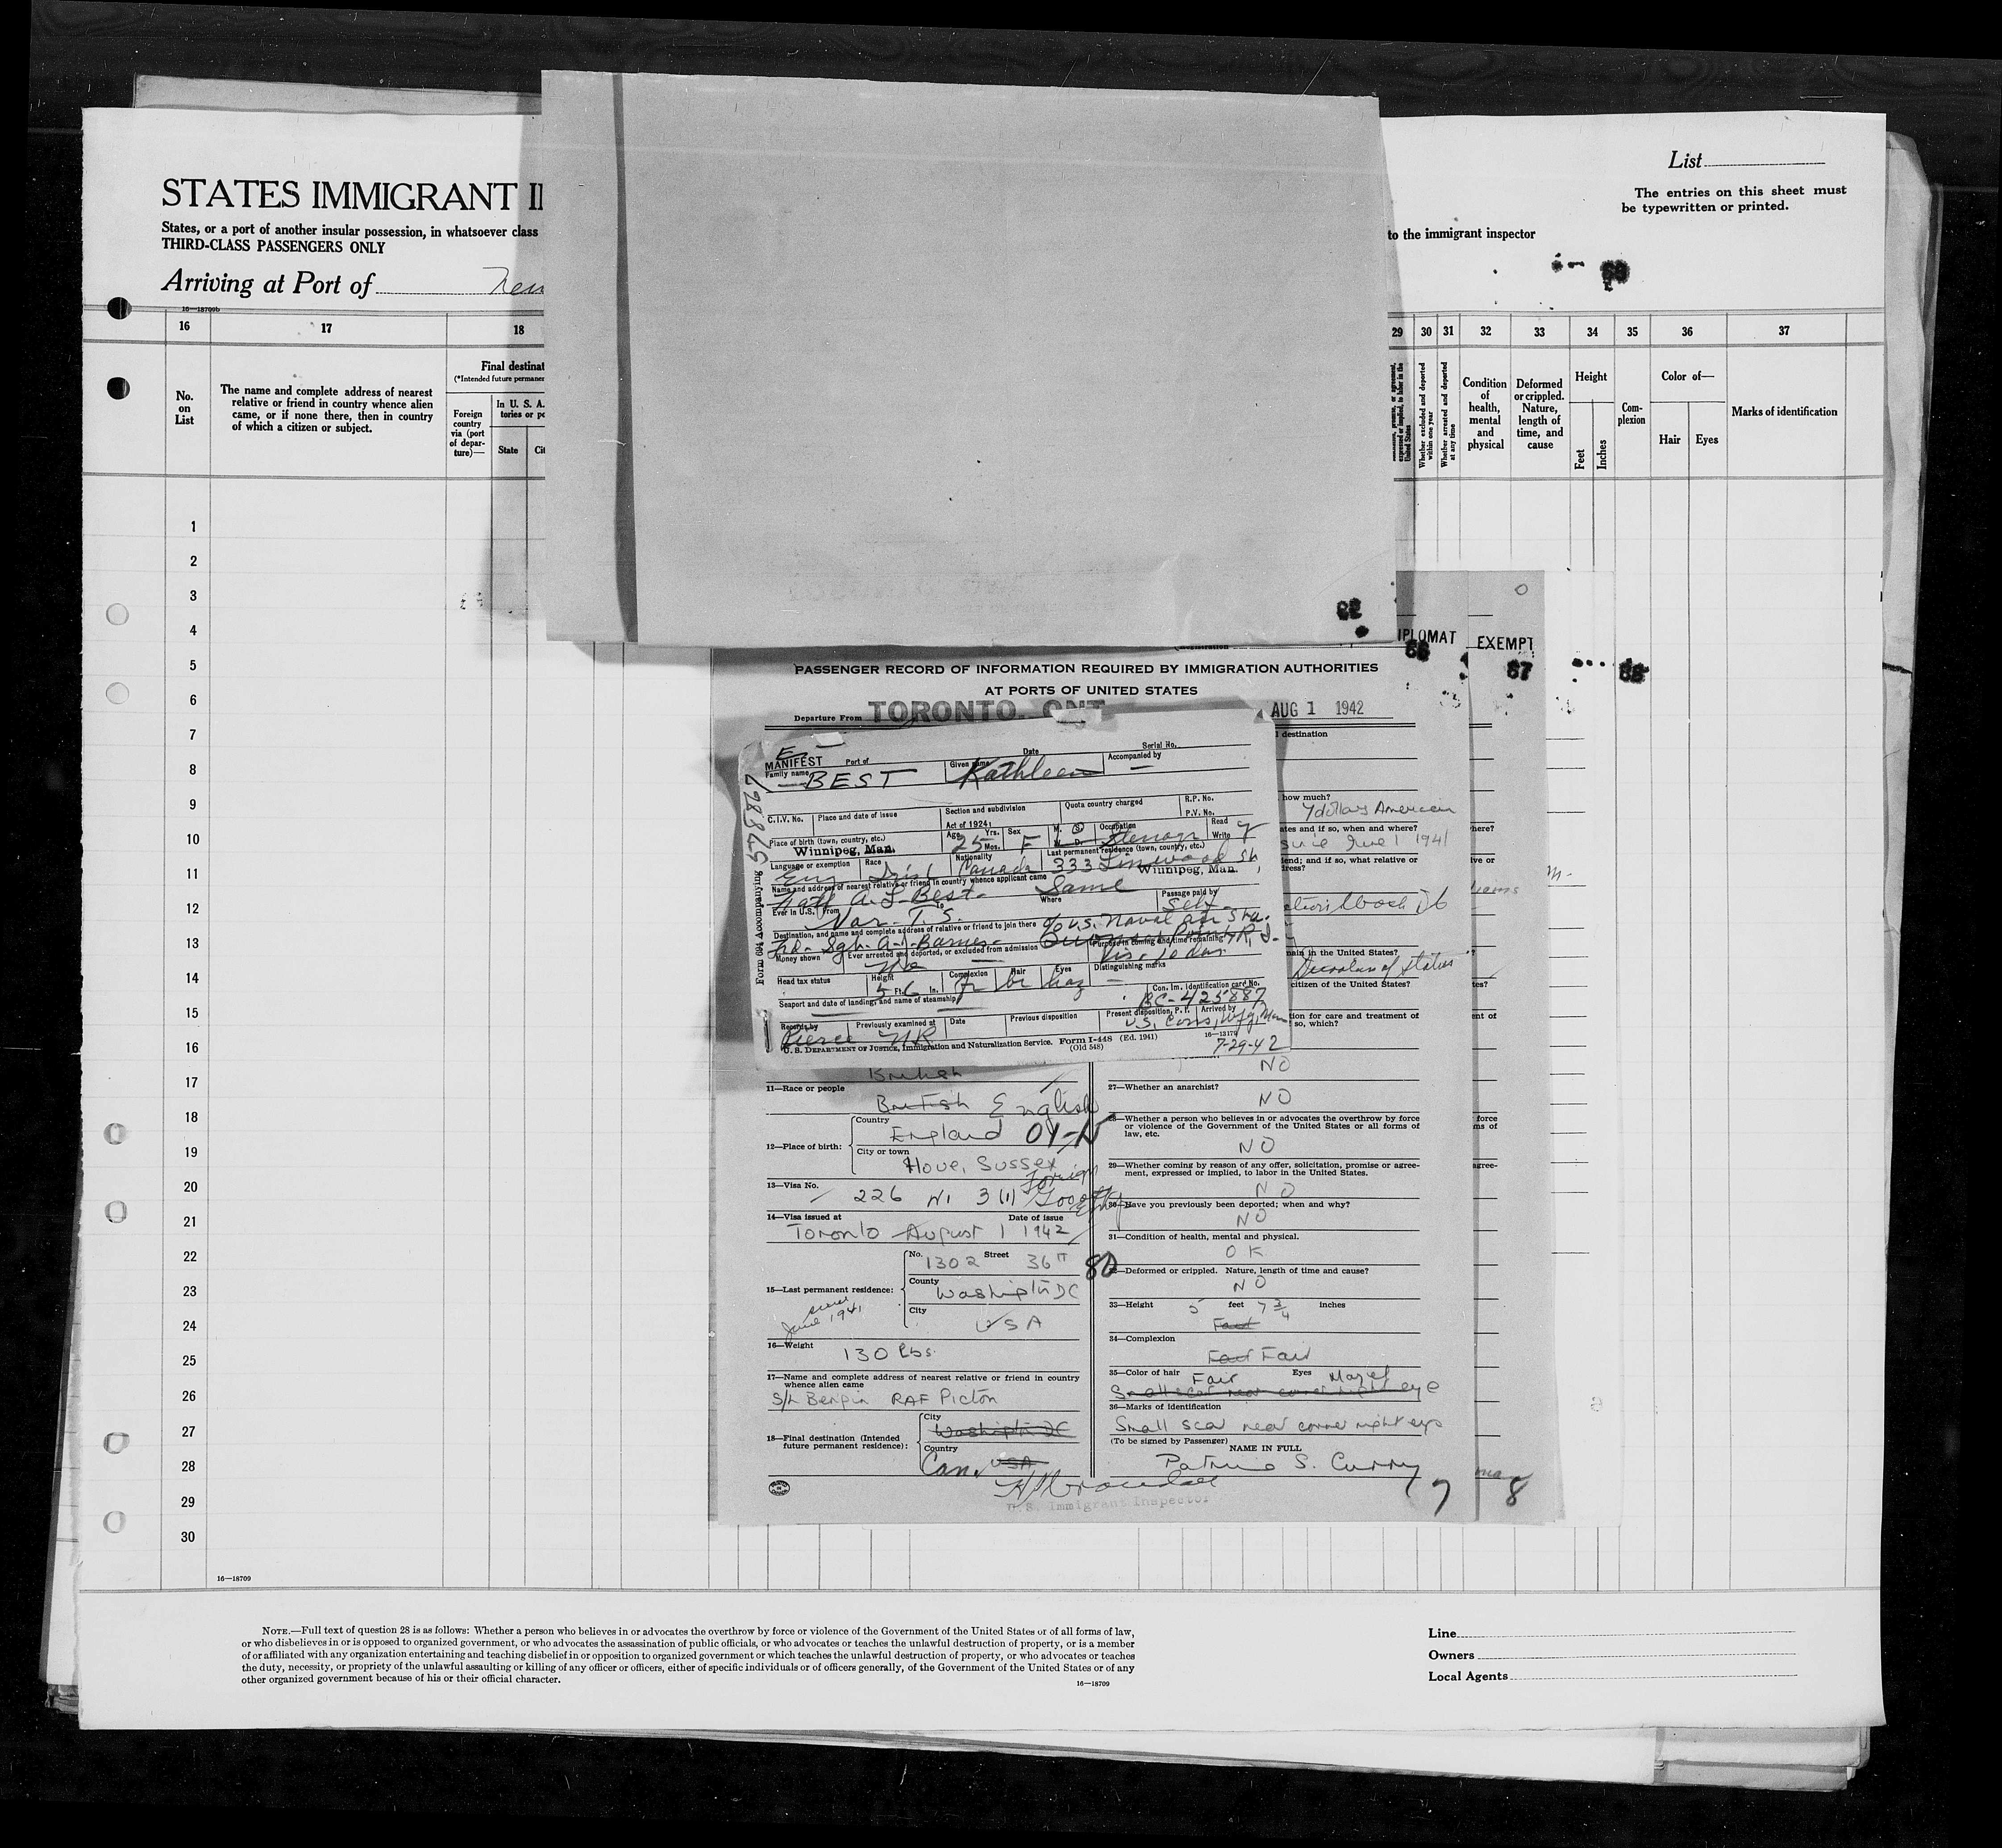 List
The entries on this sheet must
be typewritten or printed.
STATES IMMIGRANT I
States, or a port of another insular possession, in whatsoever class
to the immigrant inspector
THIRD-CLASS PASSENGERS ONLY
Arriving at Port of New
69
16—18709b
16 17 18 29 30 31 32 33 34 35 36 37
No. on List
The name and complete address of nearest
relative or friend in country whence alien
came, or if none there, then in country
of which a citizen or subject.
Final destinat
(*Intended future permane
Foreign
country
via (port
of depar-
ture)—
In U. S. A.
tories or po
State
Cit
expressed or implied, to labor in the
United States
Whether excluded and deported
within one year
Whether arrested and deported
at any time
Condition
of
health,
mental
and
physical
Deformed
or crippled.
Nature,
length of
time, and
cause
Height
Feet
Inches
Com-
plexion
Color of—
Hair
Eyes
Marks of identification
1
2
3
4
5
6
7
8
9
10
11
12
13
14
15
16
17
18
19
20
21
22
23
24
25
26
27
28
29
30
16—18709
IPLOMAT
66
EXEMPT
67
68
PASSENGER RECORD OF INFORMATION REQUIRED BY IMMIGRATION AUTHORITIES
AT PORTS OF UNITED STATES
Departure From TORONTO, ONT. AUG 1 1942
l destination
how much?
7 dollars American
ates and if so, when and where?
since June 1 1941
end; and if so, what relative or
dress?
main in the United States?
Duration of status
citizen of the United States?
tion for care and treatment of
so, which?
NO
Form 694 Accompanying 578867
MANIFEST Port of Date Serial No.
Family name BEST Given name Kathleen Accompanied by —
C.I.V. No. Place and date of issue Section and subdivision Quota country charged R.P. No.
Act of 1924: P.V. No.
Place of birth (town, country, etc.) Winnipeg, Man. Age 25 Yrs. Mos. Sex F M. S W. D. Occupation Stenogr Read Write y
Language or exemption Eng Race Irish Nationality Canada Last permanent residence (town, country, etc.) 333 Linwood St
Winnipeg, Man.
Name and address of nearest relative or friend in country whence applicant came
A. J. Best - Same
Ever in U.S. From To Where Passage paid by Self
Var. T. S.
Destination, and name and complete address of relative or friend to join there c/o U.S. Naval Air Sta.
Frd - Sgt. A. J. Barnes - Quonset Point R. I.
Money shown Ever arrested and deported, or excluded from admission Purpose in coming and time remaining
No Vis. 10 days
Head tax status Height 5 Ft. 6 In. Complexion fr Hair br Eyes haz Distinguishing marks —
Seaport and date of landing, and name of steamship Can. Im. identification card No.
BC-425887
Records by Previously examined at Date Previous disposition Present disposition, P.I. Arrived by
Pierce NR U.S. Cons, Wpg, Man
U. S. Department of Justice, Immigration and Naturalization Service. Form I-448 (Ed. 1941) 16—13179
(Old 548) 7-29-42
British
11—Race or people
British English
12—Place of birth:
Country
England
City or town
Hove, Sussex
13—Visa No.
226 NI 3 (1)
14—Visa issued at Date of issue
Toronto August 1 1942
15—Last permanent residence:
since
June 1941
No. 1302 Street 36th 80
County
Washington DC
City
USA
16—Weight
130 lbs.
17—Name and complete address of nearest relative or friend in country
whence alien came
RAF Picton
18—Final destination (Intended
future permanent residence):
City
Washington DC
Country
Can. USA
U. S. Immigrant Inspector
27—Whether an anarchist?
NO
28—Whether a person who believes in or advocates the overthrow by force
or violence of the Government of the United States or all forms of
law, etc.
NO
29—Whether coming by reason of any offer, solicitation, promise or agree-
ment, expressed or implied, to labor in the United States.
NO
30—Have you previously been deported; when and why?
NO
31—Condition of health, mental and physical.
OK
32—Deformed or crippled. Nature, length of time and cause?
NO
33—Height 5 feet 7 3/4 inches
34—Complexion
Fair
35—Color of hair Fair Eyes Hazel
Small scar near corner right eye
36—Marks of identification
Small scar near corner right eye
(To be signed by Passenger)
NAME IN FULL
S. Curry
7
8
Note.—Full text of question 28 is as follows: Whether a person who believes in or advocates the overthrow by force or violence of the Government of the United States or of all forms of law,
or who disbelieves in or is opposed to organized government, or who advocates the assassination of public officials, or who advocates or teaches the unlawful destruction of property, or is a member
of or affiliated with any organization entertaining and teaching disbelief in or opposition to organized government or which teaches the unlawful destruction of property, or who advocates or teaches
the duty, necessity, or propriety of the unlawful assaulting or killing of any officer or officers, either of specific individuals or of officers generally, of the Government of the United States or of any
other organized government because of his or their official character.
16—18709
Line
Owners
Local Agents